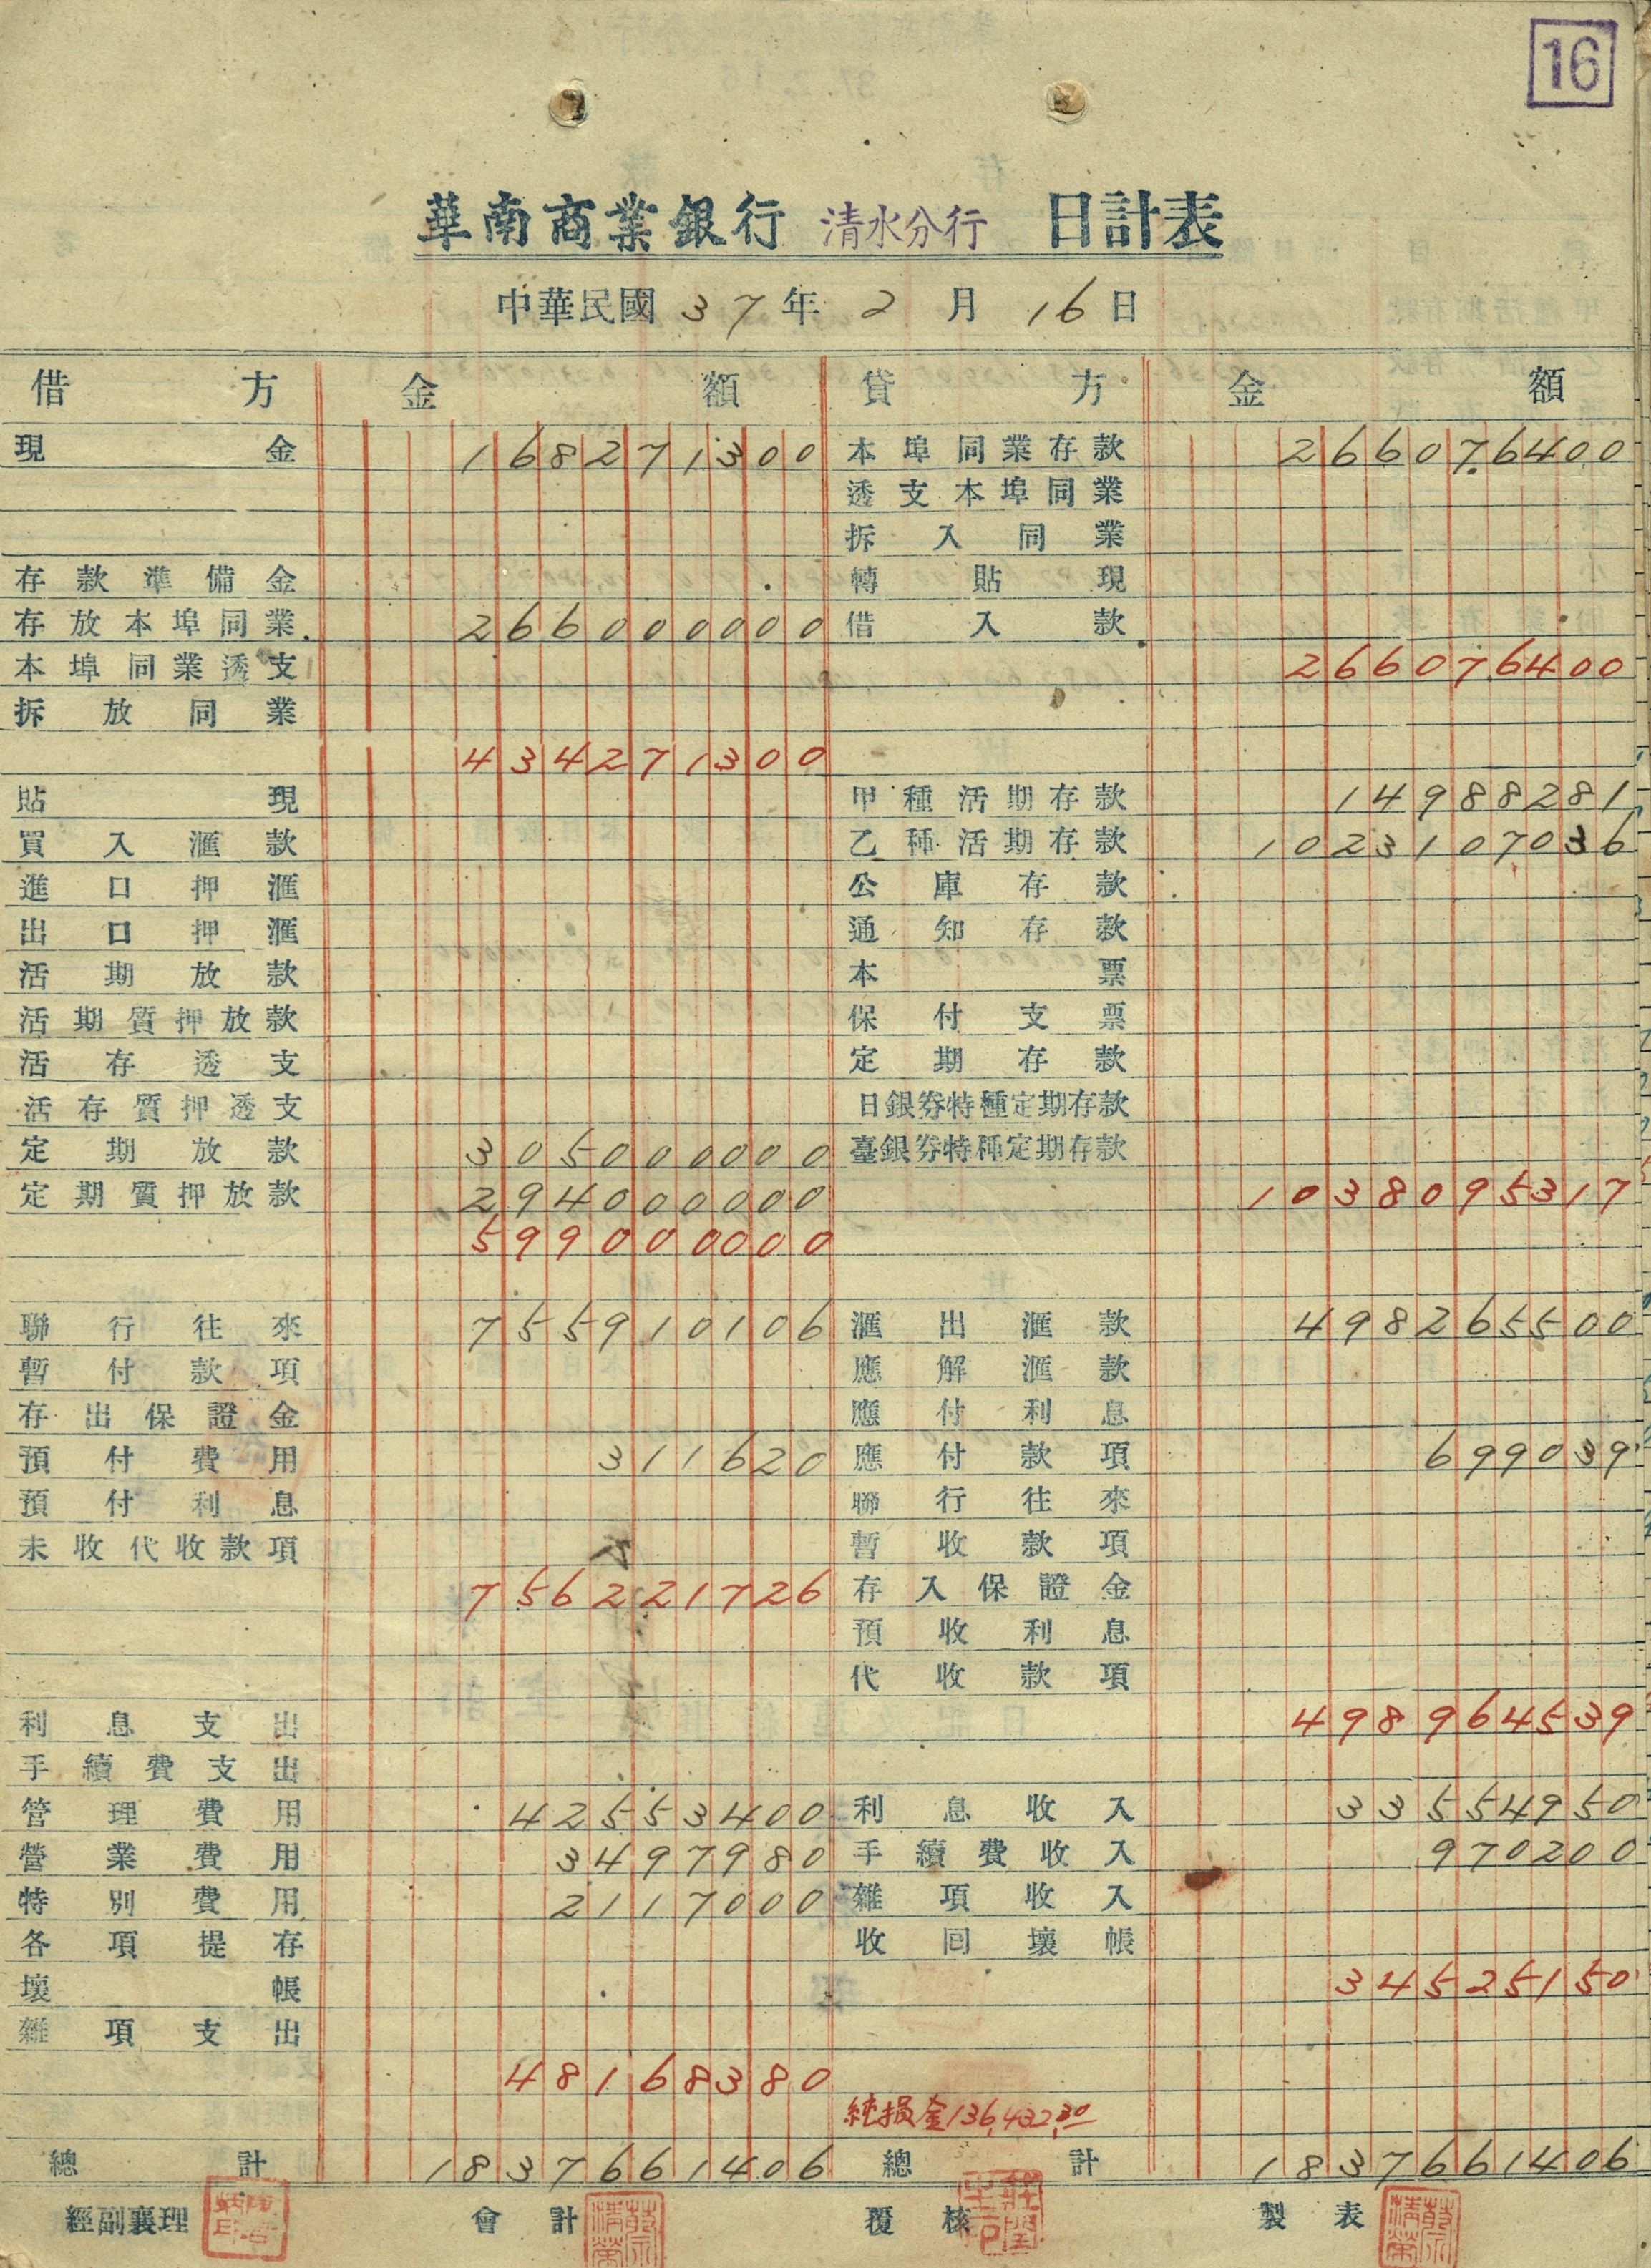 16
華南商業銀行 清水分行 日計表
中華民國 37 年 2 月 16 日
借方 金額 貸方 金額
現金 168271300 本埠同業存款 266076400
透支本埠同業
拆入同業
存款準備金 轉貼現
存放本埠同業 266000000 借入款
本埠同業透支 266076400
拆放同業
434271300
貼現 甲種活期存款 14988281
買入滙款 乙種活期存款 1023107036
進口押滙 公庫存款
出口押滙 通知存款
活期放款 本票
活期質押放款 保付支票
活存透支 定期存款
活存質押透支 日銀券特種定期存款
定期放款 305000000 臺銀券特種定期存款
定期質押放款 294000000 1038095317
599000000
聯行往來 755910106 滙出滙款 498265500
暫付款項 應解滙款
存出保證金 應付利息
預付費用 311620 應付款項 699039
預付利息 聯行往來
未收代收款項 暫收款項
756221726 存入保證金
預收利息
代收款項
利息支出 498964539
手續費支出
管理費用 42553400 利息收入 33554950
營業費用 3497980 手續費收入 970200
特別費用 2117000 雜項收入
各項提存 收回壞帳
壞帳 34525150
雜項支出
48168380
純損金136,432.30
總計 1837661406 總計 1837661406
經副襄理 會計 覆核 製表